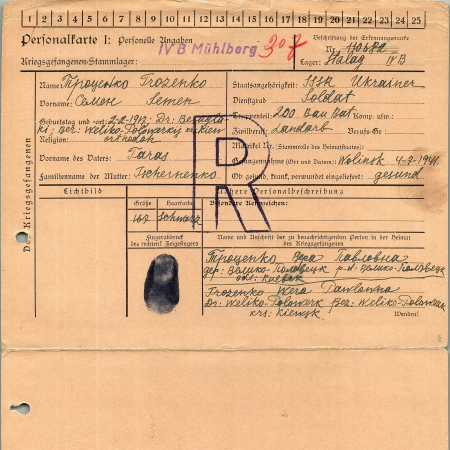 1 2 3 4 5 6 7 8 9 10 11 12 13 14 15 16 17 18 19 20 21 22 23 24 25
Personalkarte I: Personelle Angaben
IV B Mühlberg 307
Beschriftung der Erkennungsmarke
Nr. 110682
Kriegsgefangenen-Stammlager:
Lager: Stalag IV B
Des Kriegsgefangenen
Name: Троценко Trozenko
Vorname: Семен Semen
Geburtstag und -ort: 2-2-1912. Dr:
Bez: Weliko-Polowezkij
Religion: orthodox
Vorname des Vaters: Taras
Familienname der Mutter: Tschernenko
Staatsangehörigkeit: Ukrainer
Dienstgrad: Soldat
Truppenteil: 200 Bau Bat Komp. usw.:
Zivilberuf: Landarb Berufs-Gr.:
Matrikel Nr. (Stammrolle des Heimatstaates):
Gefangennahme (Ort und Datum): 4-9-1941.
Ob gesund, krank, verwundet eingeliefert: gesund
R
Lichtbild
Nähere Personalbeschreibung
Größe Haarfarbe Besondere Kennzeichen:
167 Schwarz
Fingerabdruck
des rechten! Zeigefingers
Name und Anschrift der zu benachrichtigenden Person in der Heimat
des Kriegsgefangenen
Троценко Вера Павловна
дер: Велико-Половецк р-н: Велико-Половецк
обл: Киевск
Trozenko Wera Pawlowna
Dr: Weliko-Polowezk Bez: Weliko-Polowezk
krs: Kiewsk.
Wenden!